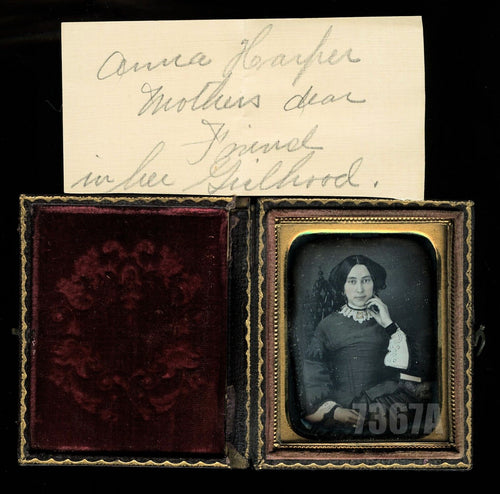 Anna Harper
Mothers dear
Friend
in her Girlhood.
7367A